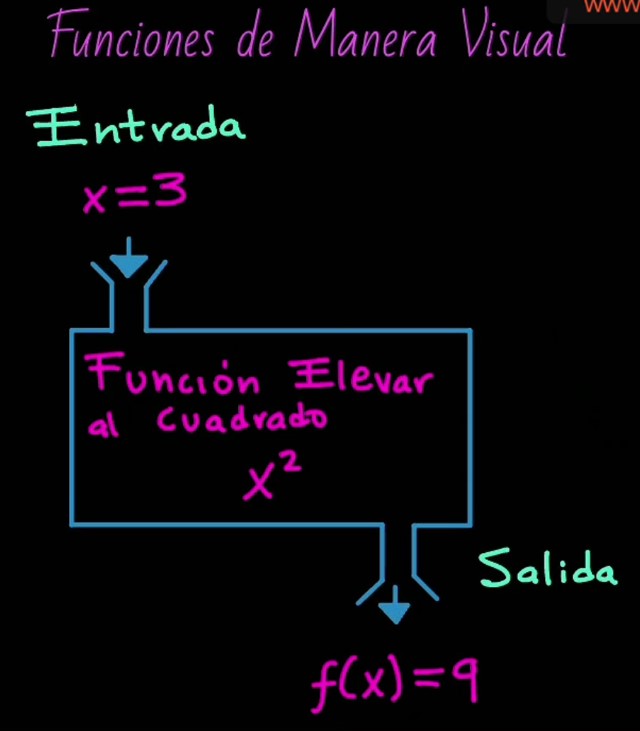 www
Funciones de Manera Visual
Entrada
x=3
Función Elevar
al cuadrado
x²
Salida
f(x)=9